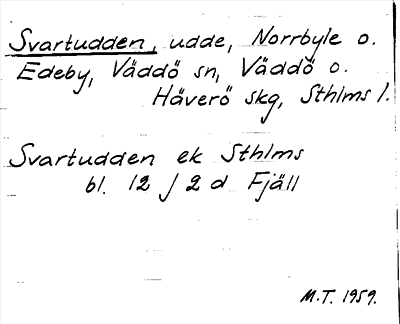 Svartudden, udde, Norrbyle o.
Edeby, Väddö sn, Väddö o.
Häverö skg, Sthlms l.
Svartudden ek Sthlms
bl. 12 j 2 d Fjäll
M.T. 1959.